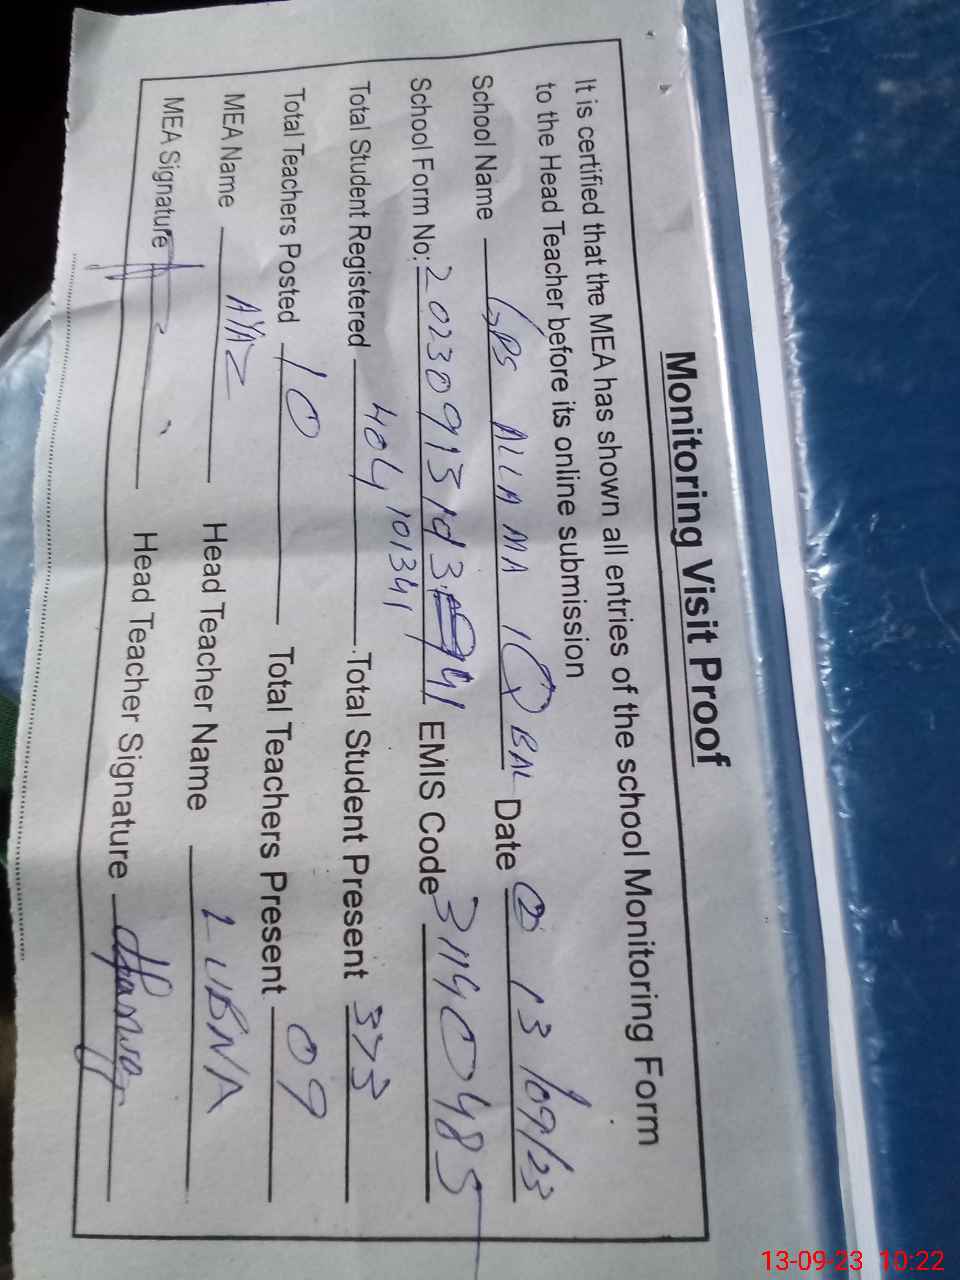 Monitoring Visit Proof
It is certified that the MEA has shown all entries of the school Monitoring Form
to the Head Teacher before its online submission
School Name GPS ALLAMA IQBAL Date 13/09/23
School Form No: 20230913 EMIS Code 31140485
101341
Total Student Registered 404 Total Student Present 373
Total Teachers Posted 10 Total Teachers Present 09
MEA Name AYAZ Head Teacher Name LUBNA
MEA Signature Head Teacher Signature
13-09-23 10:22